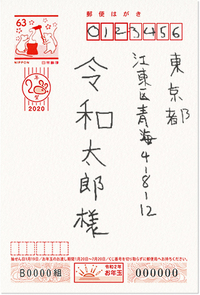 郵便はがき
63
NIPPON 日本郵便
0123456
2020
東京都
江東区青海4-8-12
令和太郎様
B0000組
令和2年
お年玉
000000